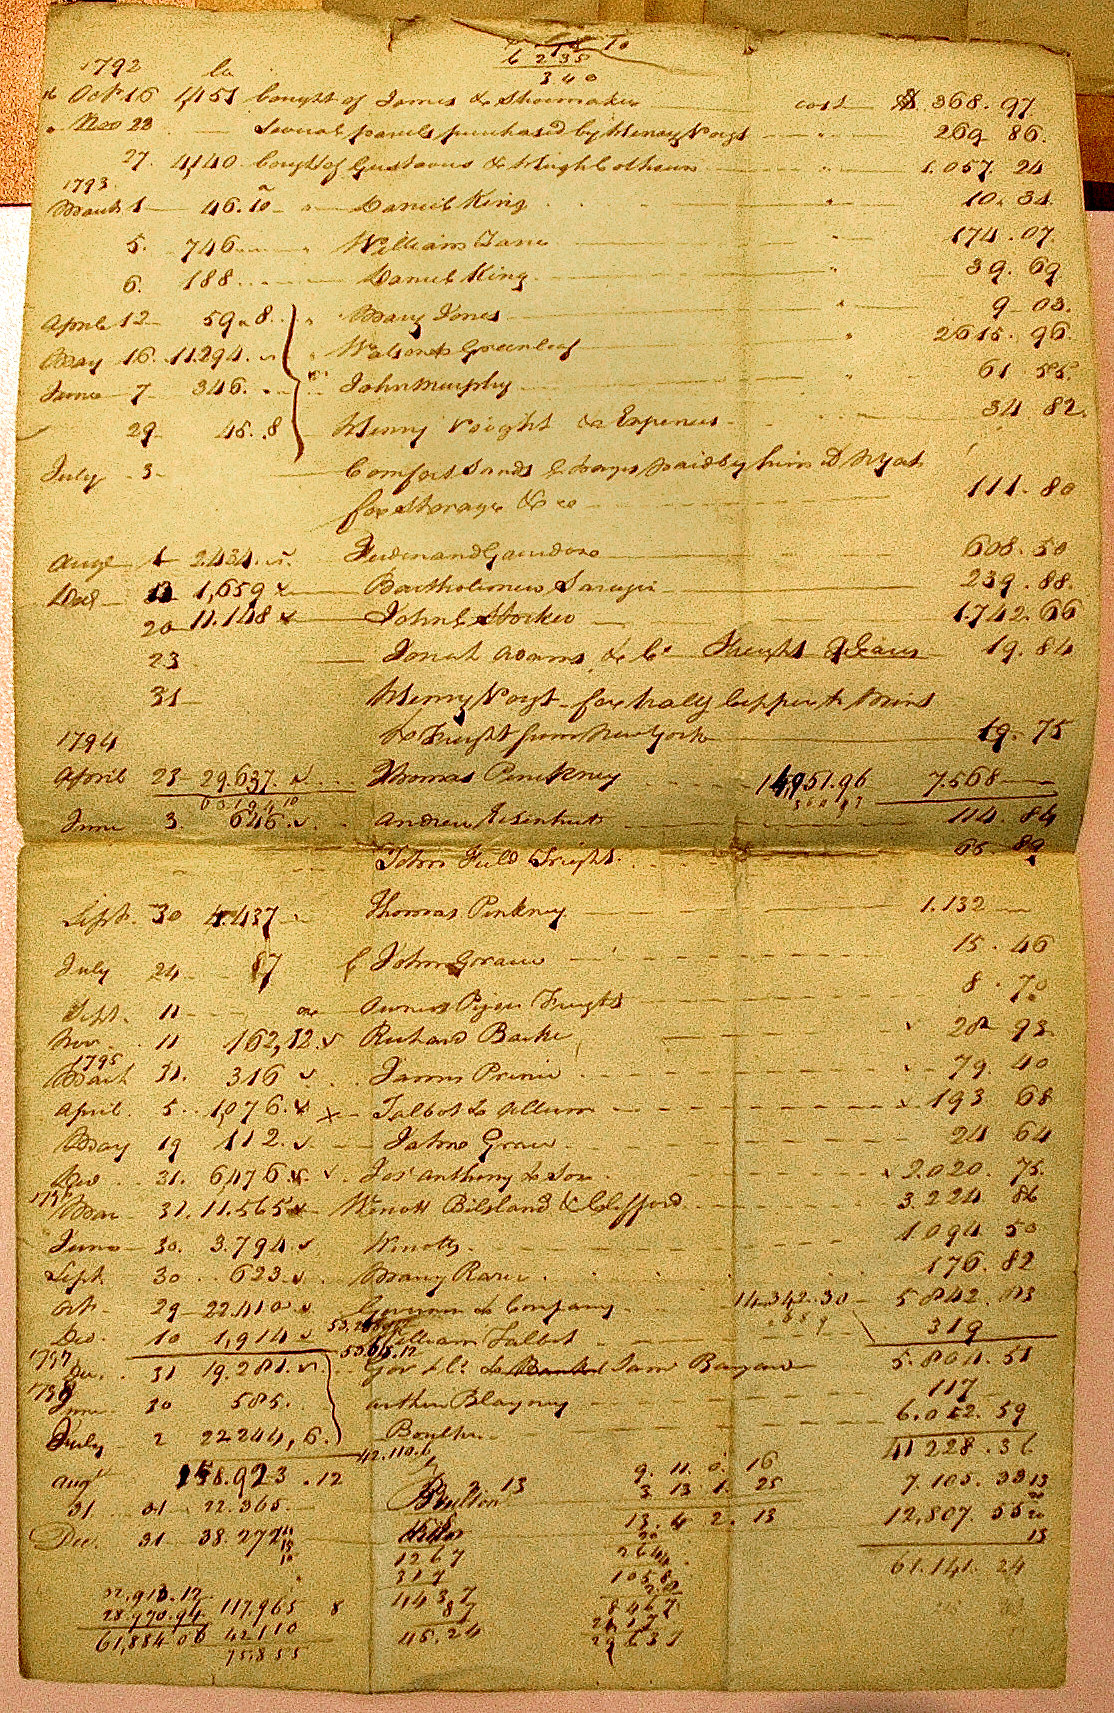 6 235
340
1792 lb
Oct 16 1,451 bought of James & Shoemaker cost $ 368.97
Nov 23 Several parcels purchased by Henry Voigt 269 86.
27. 4,140 bought of Gustavus & Hugh Colhoun 1.057 24
1793
March 1 46.10 Daniel King 10.34
5. 746 William Zane 174.07
6. 188 Daniel King 39.69
April 12 59.8 Mary Jones 9 03.
May 16. 11.294. Watson & Greenleaf 2615.96
June 7 346. John Murphy 61 55.
29 45.8 Henry Voight & Expences 34 82.
July 3 Comfort Sands paid by him
for Storage &c 111.80
Augt 1 2.434. Ferdinand Gourdon 608.50
Decr 13 1,659 Bartholomew 239.88.
20 11.148 John C Stocker 1.742.66
23 Jonah Adams & Co Freight 19.84
31 Henry Voigt for Copper to Mint
& Freight from New York 19.75
1794
April 23 29.637. Thomas Pinckney 14,951.96 7.568
June 3. 646. Andrew Eisenhut 114.84
John Field Freight 65 89
Sept. 30 4.437 Thomas Pinkney 1.132
July 24 87 John Graver 15.46
Sept. 11 Owners Freight 8.70
Nov. 11 162,12. Richard Bache 28 93.
1795
March 31. 316 James Prince 79.40
April. 5. 1,076. Talbot & Allum 193 68
May 19 112. John Graver 24 64
Dec. 31. 6,476 Jos Anthony & Son 2.020.75.
1796
Mar 31. 11.565 Wm Nott Bilsland & Clifford 3.224 86
June 30. 3.794 Wm Nott 1094 50
Sept. 30 623 Mary Rarer 176.82
Oct. 29 22.410 Governor & Company 14.342.30 5842.03
Dec. 10 1,914 William Talbot 319
1797
Dec. 31 19.281. Gov & Co & Sam Bayard 5.864.51
1798
June 20 585. Arthur Blayney 117
July 2 22244,6. Boulton 6.052.59
42.110.6 41228.36
Augt 158.923.12 9.11.0.16
31 22.365. Boulton 3 13 1. 25 7.105.33
13.4 2.13 12,807.55
Dec. 31 38.277
1267 264
317 1058 61.141.24
32,913.12
28.970.94 117.965 8 8467
61,884 06 42110
75,855 45.24 29637